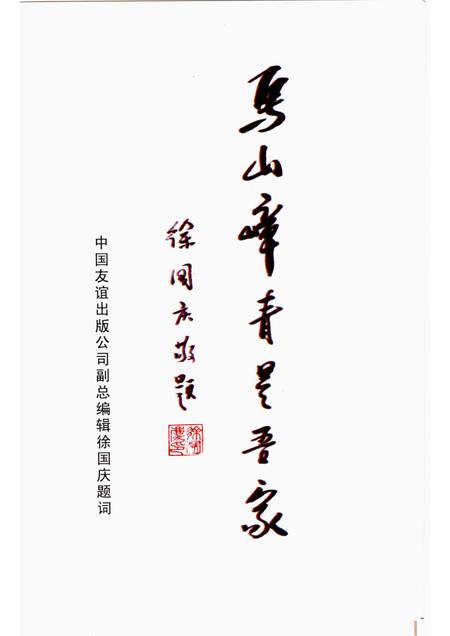 马山峰青是吾家
徐国庆敬题
中国友谊出版公司副总编辑徐国庆题词